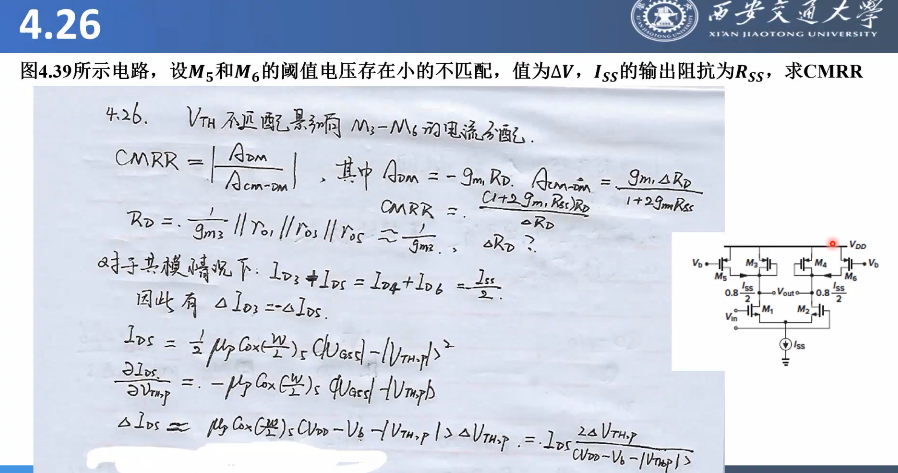 4.26
西安交通大學
XI'AN JIAOTONG UNIVERSITY
图4.39所示电路，设M₅和M₆的阈值电压存在小的不匹配，值为ΔV，I_SS的输出阻抗为R_SS，求CMRR
4.26. V_TH 不匹配影响 M3-M6 的电流分配.
CMRR = |A_DM / A_CM-DM| , 其中 A_DM = -g_m1 R_D. A_CM-DM = g_m1 ΔR_D / 1+2g_m R_SS
CMRR =. (1+2g_m1 R_SS)R_D / ΔR_D
R_D =. 1/g_m3 // r_o1 // r_o3 // r_o5 ≈ 1/g_m3 ., ΔR_D ?
对于共模情况下. I_D3 + I_D5 = I_D4 + I_D6 = I_SS/2.
因此有 ΔI_D3 = -ΔI_D5.
I_D5 = 1/2 μp Cox (W/L)₅ (|V_GS5| - |V_TH,p|)²
∂I_D5/∂V_TH,p =. -μp Cox (W/L)₅ (|V_GS5| - |V_TH,p|)
ΔI_D5 ≈ μp Cox (W/L)₅ (V_DD - V_b - |V_TH,p|) ΔV_TH,p . =. I_D5 2ΔV_TH,p / (V_DD - V_b - |V_TH,p|)
V_DD
V_b M₃ M₄ V_b
M₅ M₆
0.8 I_SS/2 V_out 0.8 I_SS/2
V_in M₁ M₂
I_SS